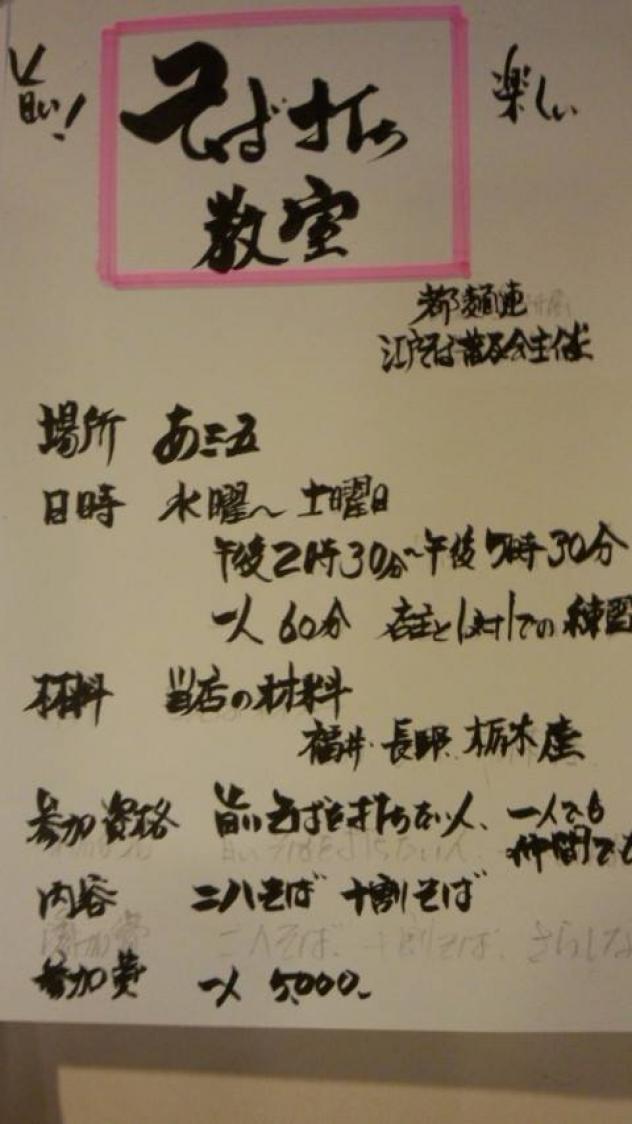 旨い!
そば打ち
教室
楽しい
都麺連
江戸そば普及会主催
場所 あ三五
日時 水曜～土曜日
午後2時30分～午後5時30分
一人 60分 店主と1対1での練習
材料 当店の材料
福井、長野、栃木産
参加資格 旨いそばを打ちたい人、一人でも
仲間でも
内容 二八そば 十割そば
参加費 一人 5,000-